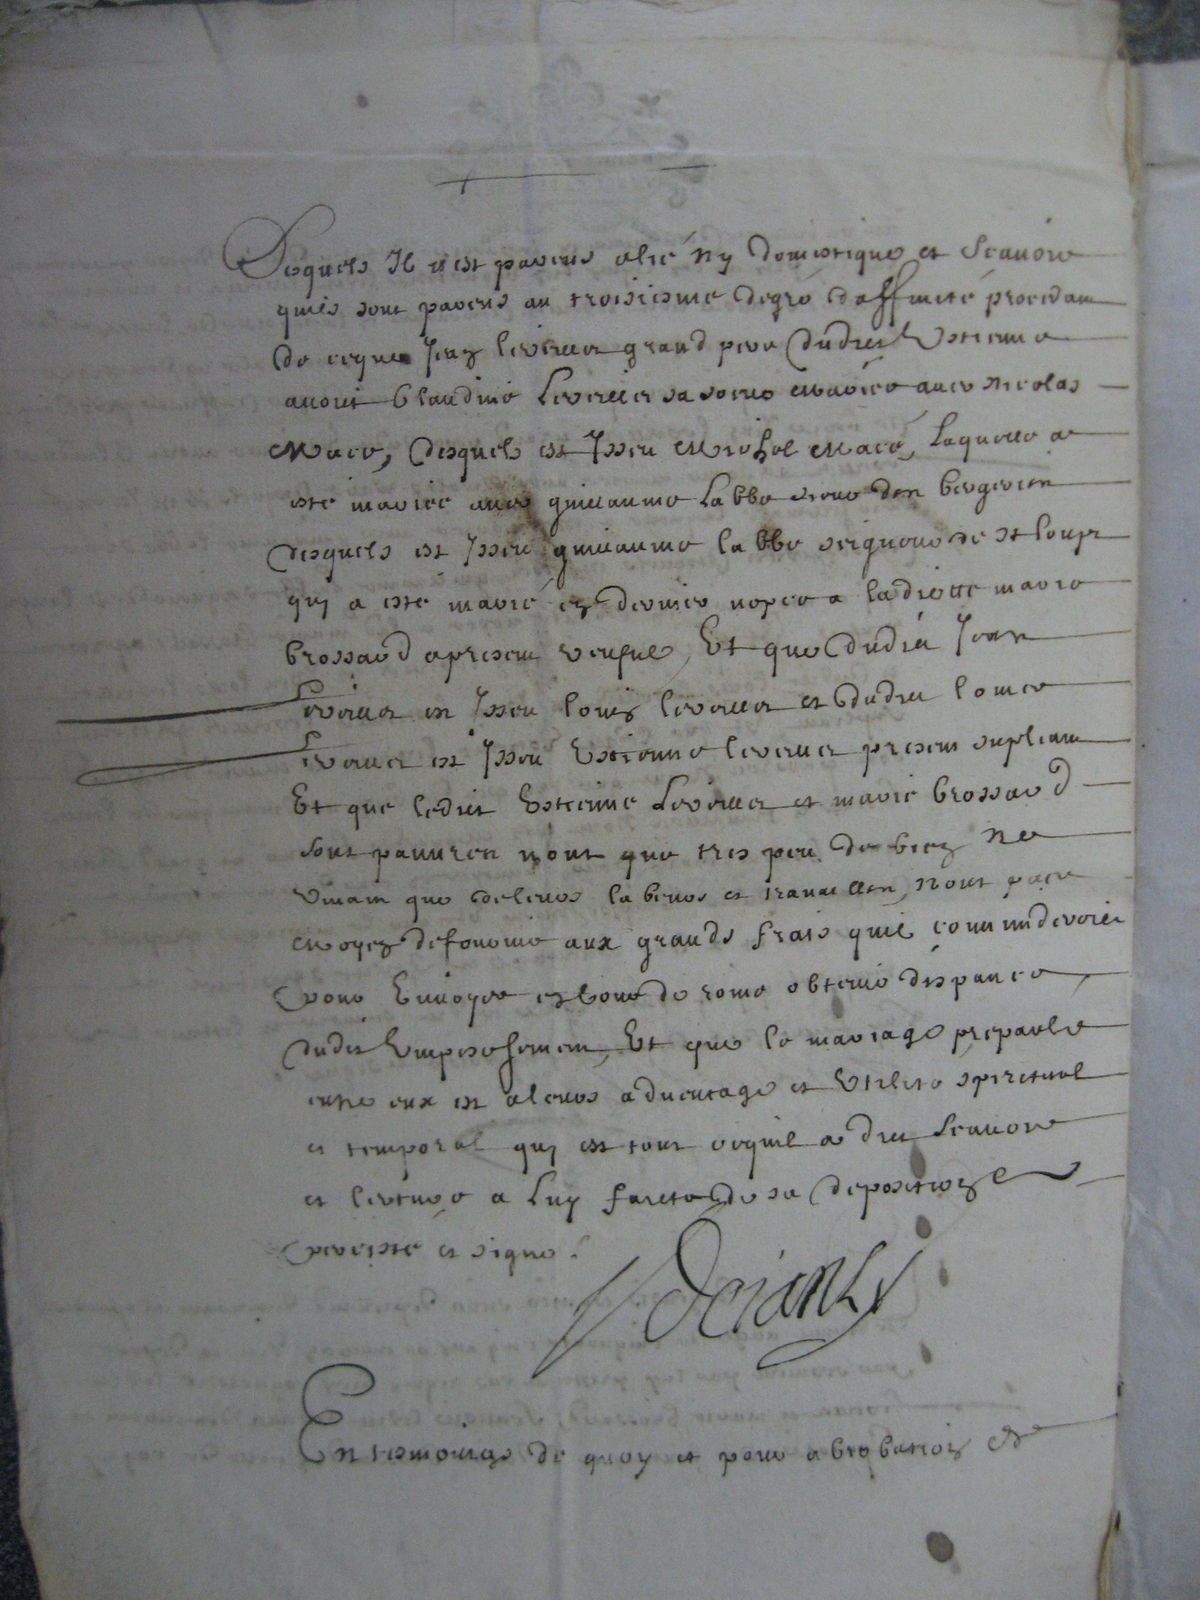 Desquels Il n'est parens alié ny domestique et scauoir
quils sont parens au troisiesme degré daffinité procedam
de ceque Jean leverrier grand pere dudict Estienne
auoict Claudine Leverrier sa soeur mariée auec Nicolas
Macé, desquels est Issu Michel Macé, Laquelle a
esté mariée auec guillaume Labbe sieur des bergerien
desquels est Issu guillaume labbe seigneur de st loup
quy a esté marié en dernier nopce a ladicte marie
brossard apresent veufue, Et que dudict Jean
Leverrier est Issu louis leverrier et dudict louis
Leverrier est Issu Estienne leverrier present supliant
Et que ledict Estienne Leverrier et marie brossard
sont pauures nont que tres peu de bien ne
viuant que de leurs labeurs et trauailles, nont pas
moyen defournir aux grands frais quil conuiendroict
pour Enuoyer en cour de rome obtenir dispance
dudit Empeschement, Et que le mariage preparlé
entre eux est a leur aduentage et Utilité spirituel
et temporel quy est tout cequil a dict scauoir
et lecture a luy faicte de sa deposition
persisté et signé.
En tesmoing de quoy et pour abrobation de